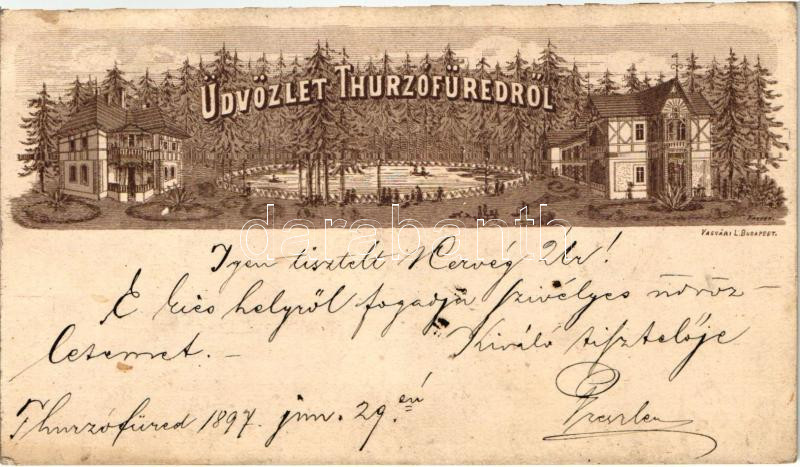 ÜDVÖZLET THURZÓFÜREDRŐL
VASVÁRI L. BUDAPEST.
darabanth
Igen tisztelt Hervég Úr!
E kies helyről fogadja szivélyes üdvöz-
letemet. – Kiváló tisztelője
Thurzófüred 1897. jun. 29.én